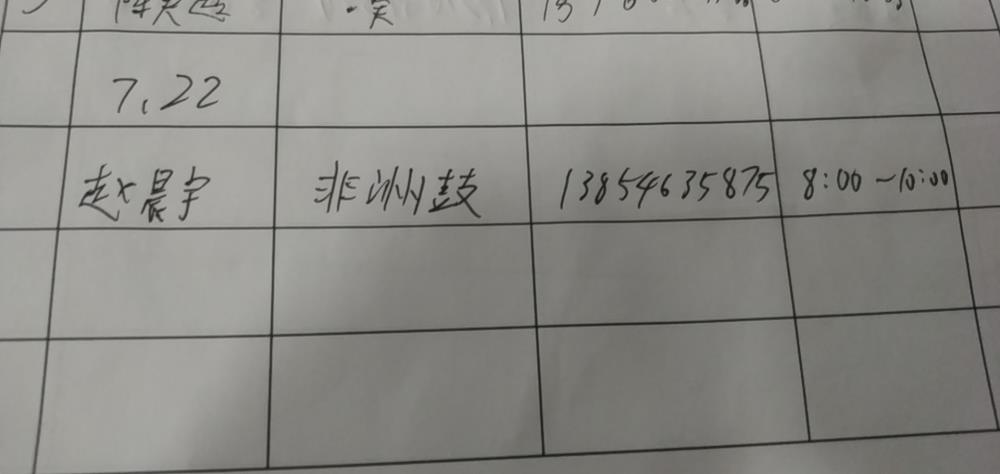 7.22
赵晨宇 非洲鼓 13854635875 8:00~10:00